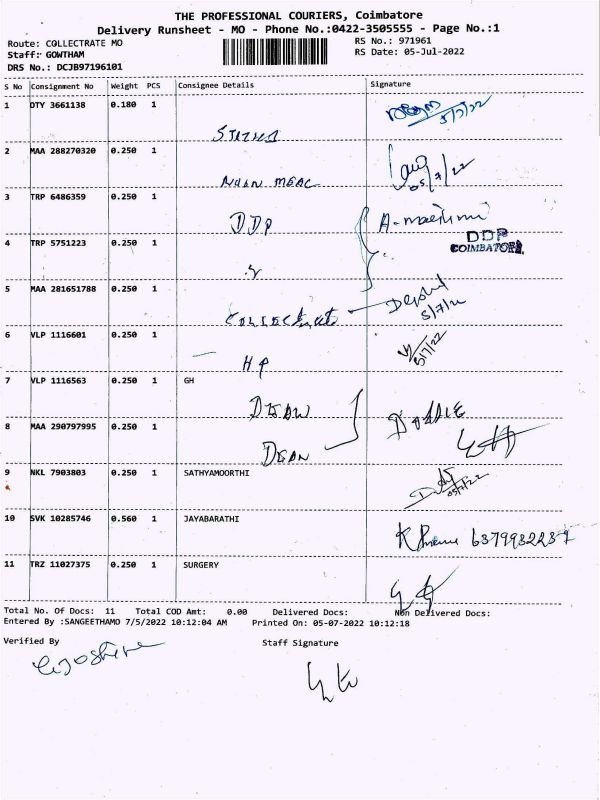 THE PROFESSIONAL COURIERS, Coimbatore
Delivery Runsheet - MO - Phone No.:0422-3505555 - Page No.:1
Route: COLLECTRATE MO
RS No.: 971961
Staff: GOWTHAM
RS Date: 05-Jul-2022
DRS No.: DCJB97196101
S No Consignment No Weight PCS Consignee Details Signature
1 DTY 3661138 0.180 1
5/7/22
2 MAA 288270320 0.250 1
05/7/22
3 TRP 6486359 0.250 1
DDP
DDP
COIMBATORE
4 TRP 5751223 0.250 1
5 MAA 281651788 0.250 1
Collectrate
5/7/22
6 VLP 1116601 0.250 1
HP
5/7/22
7 VLP 1116563 0.250 1 GH
DEAN
8 MAA 290797995 0.250 1
DEAN
9 NKL 7903803 0.250 1 SATHYAMOORTHI
05/7/22
10 SVK 10285746 0.560 1 JAYABARATHI
6379932237
11 TRZ 11027375 0.250 1 SURGERY
Total No. Of Docs: 11 Total COD Amt: 0.00 Delivered Docs: Non Delivered Docs:
Entered By :SANGEETHAMO 7/5/2022 10:12:04 AM Printed On: 05-07-2022 10:12:18
Verified By Staff Signature